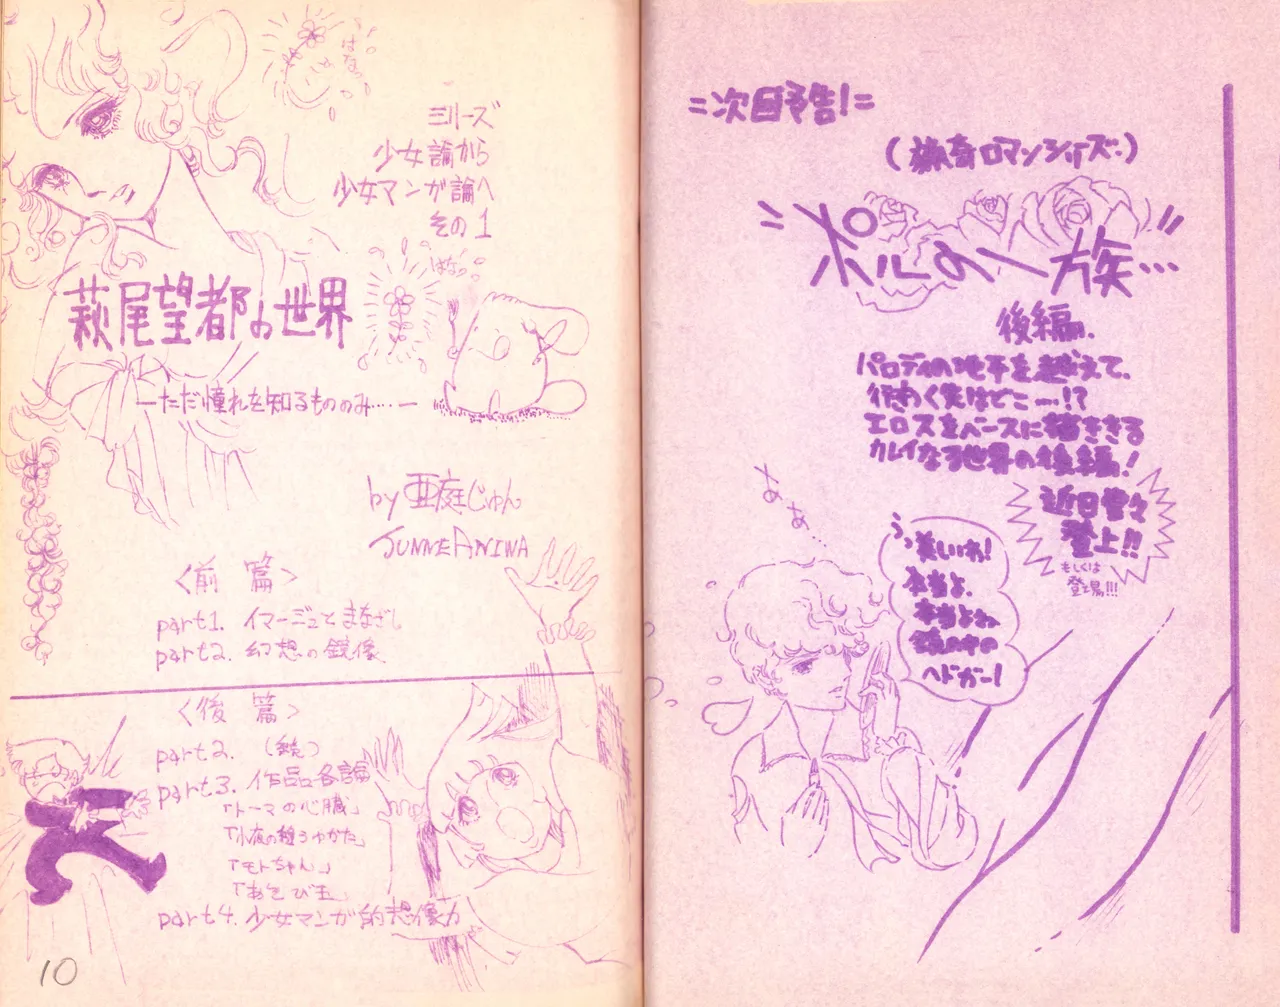 はなっ
シリーズ
少女論から
少女マンガ論へ
その1
はなっ
萩尾望都の世界
—ただ憧れを知るもののみ……—
by 亜庭じゅん
JUNNE ANIWA
〈前篇〉
part1. イマージュとまなざし
part2. 幻想の鏡像
〈後篇〉
part2. (続)
part3. 作品各論
「トーマの心臓」
「小夜の縫うゆかた」
「モトちゃん」
「あそび玉」
part4. 少女マンガ的想像力
10
=次回予告!=
(猟奇ロマンシリーズ・)
ポルの一族…
後編.
パロディの地平を越えて、
行きつく先はどこ—!?
エロスをベースに描ききる
カレイなる世界の後編!
近日堂々
登上!!
もしくは
登場!!!
あぁ…
うっ美しいわ!
本当よ、
本当よネ、
ヘドガー!